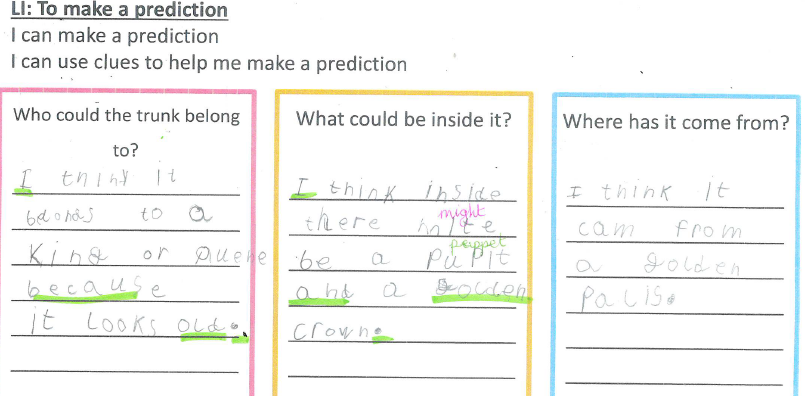 LI: To make a prediction
I can make a prediction
I can use clues to help me make a prediction
Who could the trunk belong
to?
I think it
belongs to a
King or Quene
because
it looks old.
What could be inside it?
I think inside
might
there mite
puppet
be a pupit
and a golden
crown.
Where has it come from?
I think it
cam from
a golden
palis.